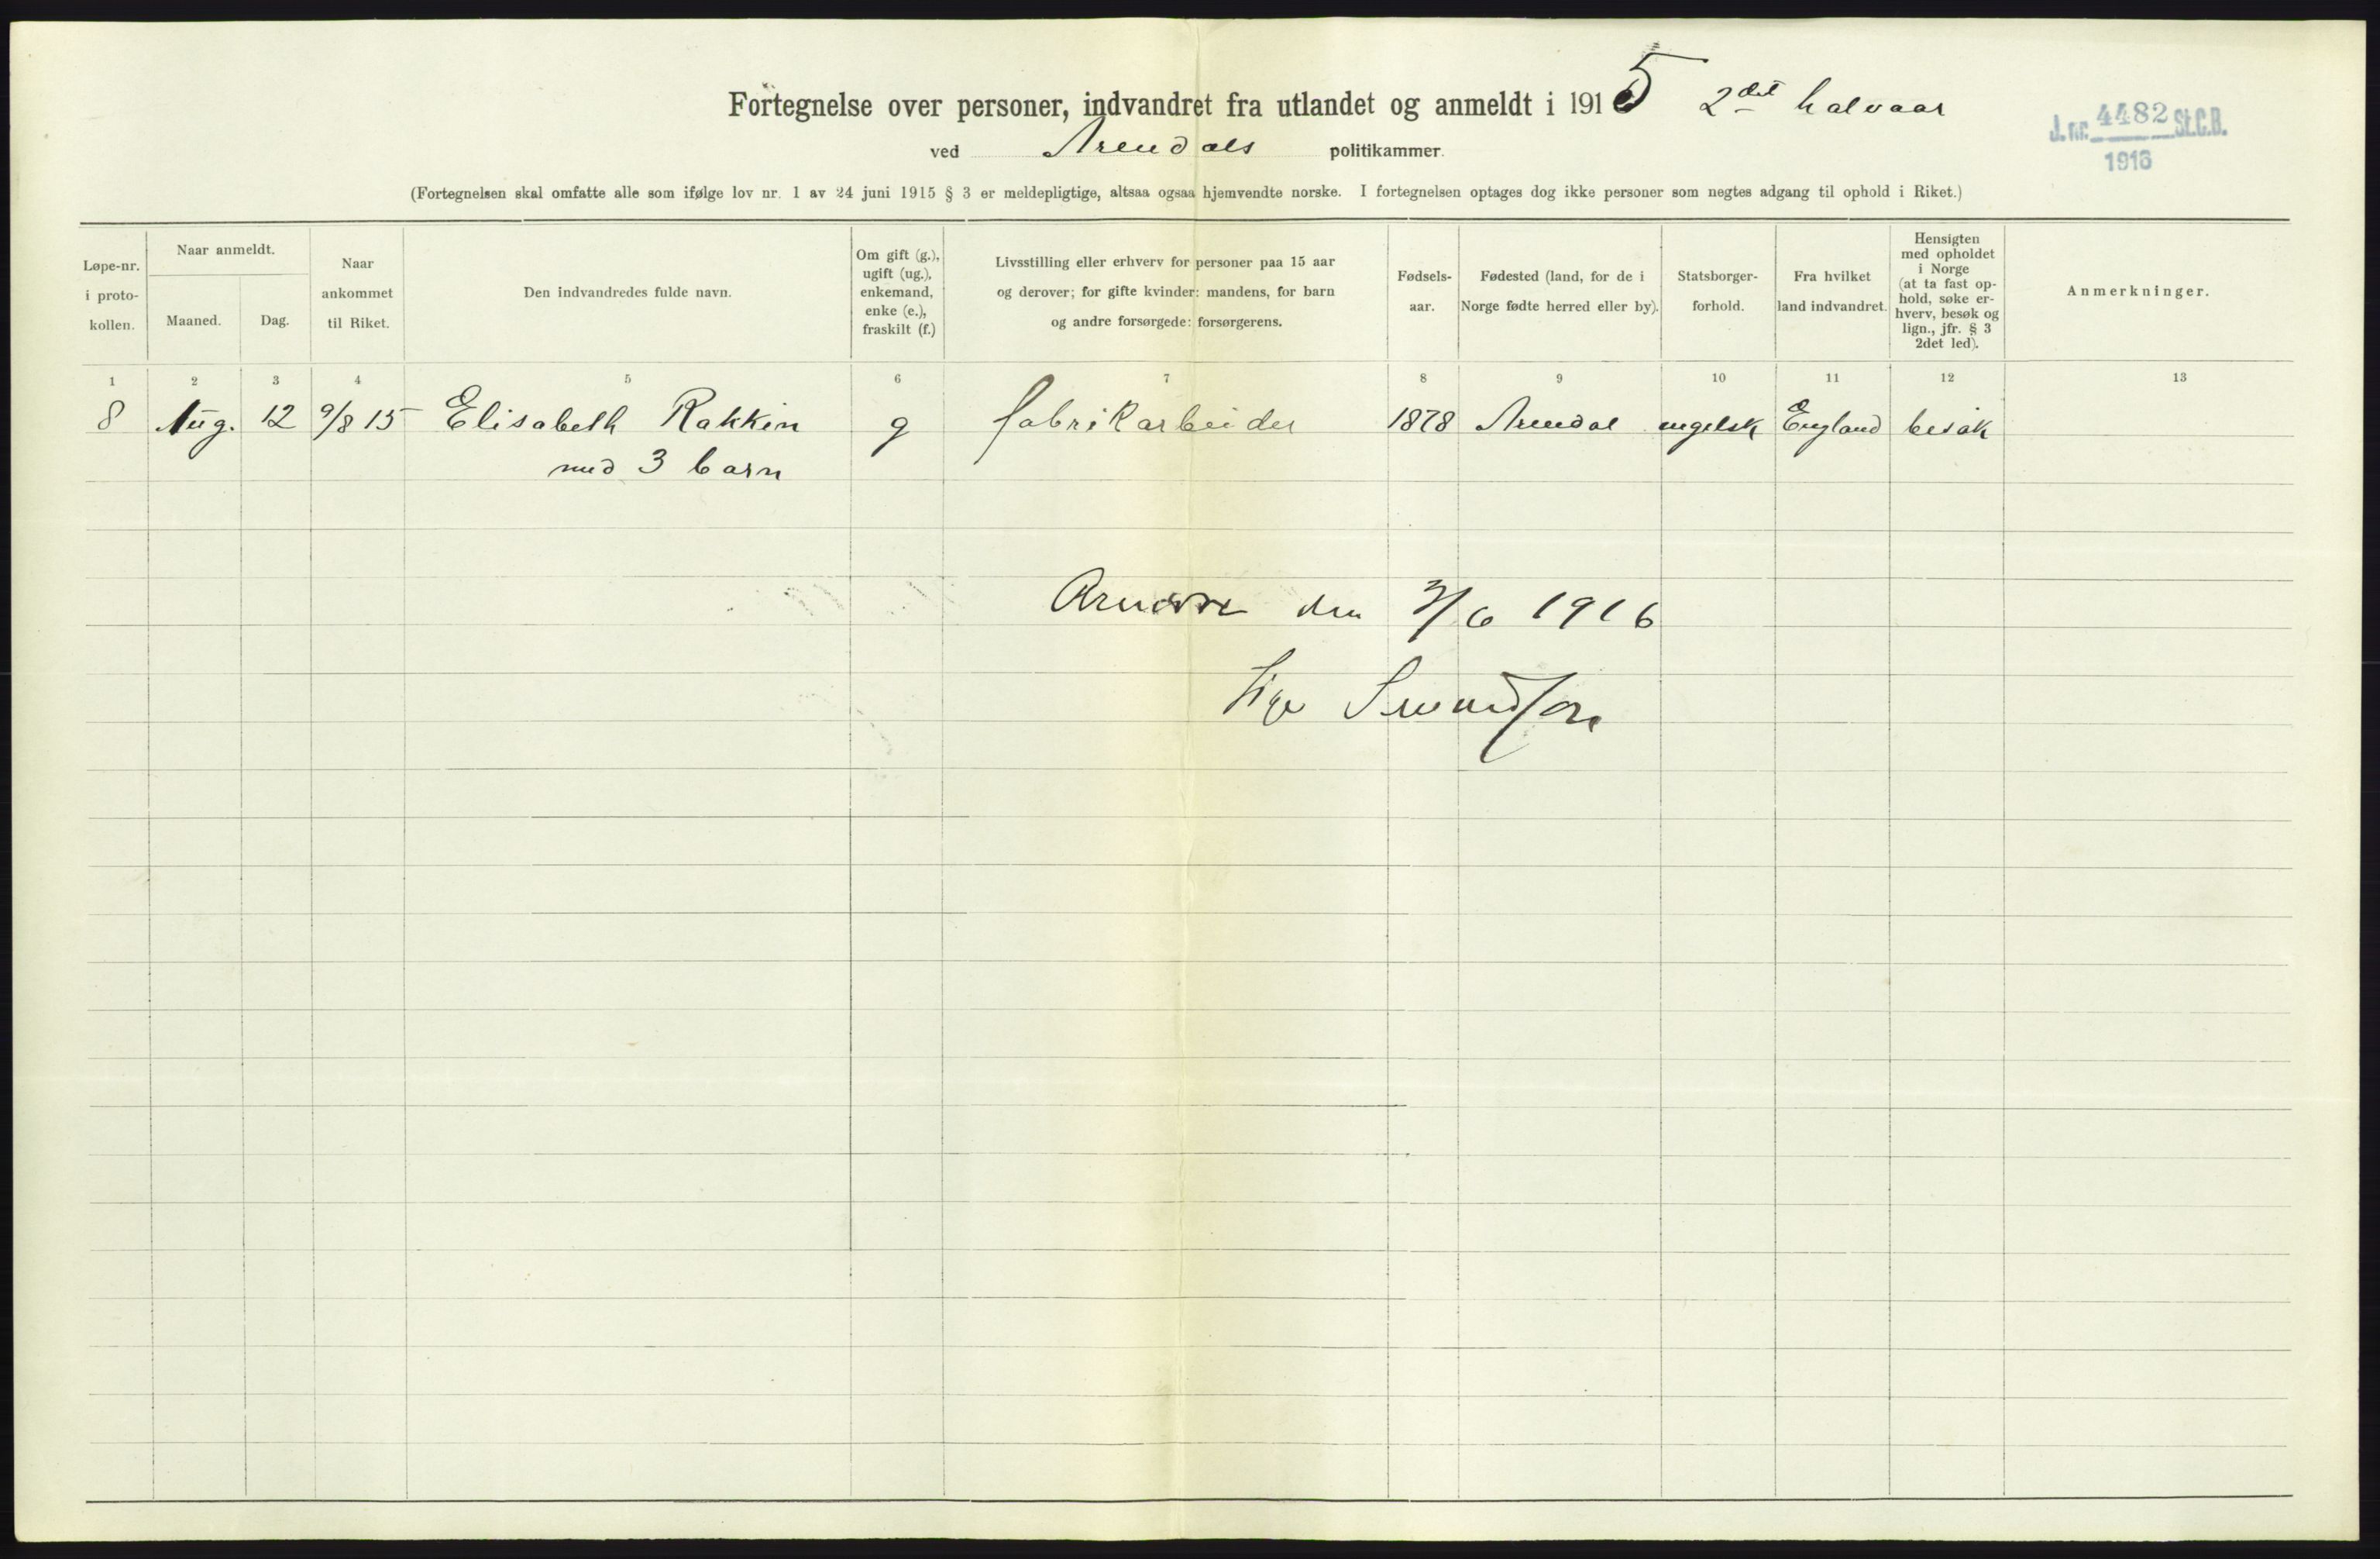 Fortegnelse over personer, indvandret fra utlandet og anmeldt i 1915 2det halvaar
ved Arendals politikammer.
J. nr. 4482 St.C.B.
1916
(Fortegnelsen skal omfatte alle som ifølge lov nr. 1 av 24 juni 1915 § 3 er meldepligtige, altsaa ogsaa hjemvendte norske. I fortegnelsen optages dog ikke personer som negtes adgang til ophold i Riket.)
Løpe-nr.
i proto-
kollen.
Naar anmeldt.
Maaned.
Dag.
Naar
ankommet
til Riket.
Den indvandredes fulde navn.
Om gift (g.),
ugift (ug.),
enkemand,
enke (e.),
fraskilt (f.)
Livsstilling eller erhverv for personer paa 15 aar
og derover; for gifte kvinder: mandens, for barn
og andre forsørgede: forsørgerens.
Fødsels-
aar.
Fødested (land, for de i
Norge fødte herred eller by).
Statsborger-
forhold.
Fra hvilket
land indvandret.
Hensigten
med opholdet
i Norge
(at ta fast op-
hold, søke er-
hverv, besøk og
lign., jfr. § 3
2det led).
Anmerkninger.
1 2 3 4 5 6 7 8 9 10 11 12 13
8 Aug. 12 9/8 15 Elisabeth Rakkin g fabrikarbeider 1878 Arendal engelsk England besøk
med 3 barn
den 3/6 1916